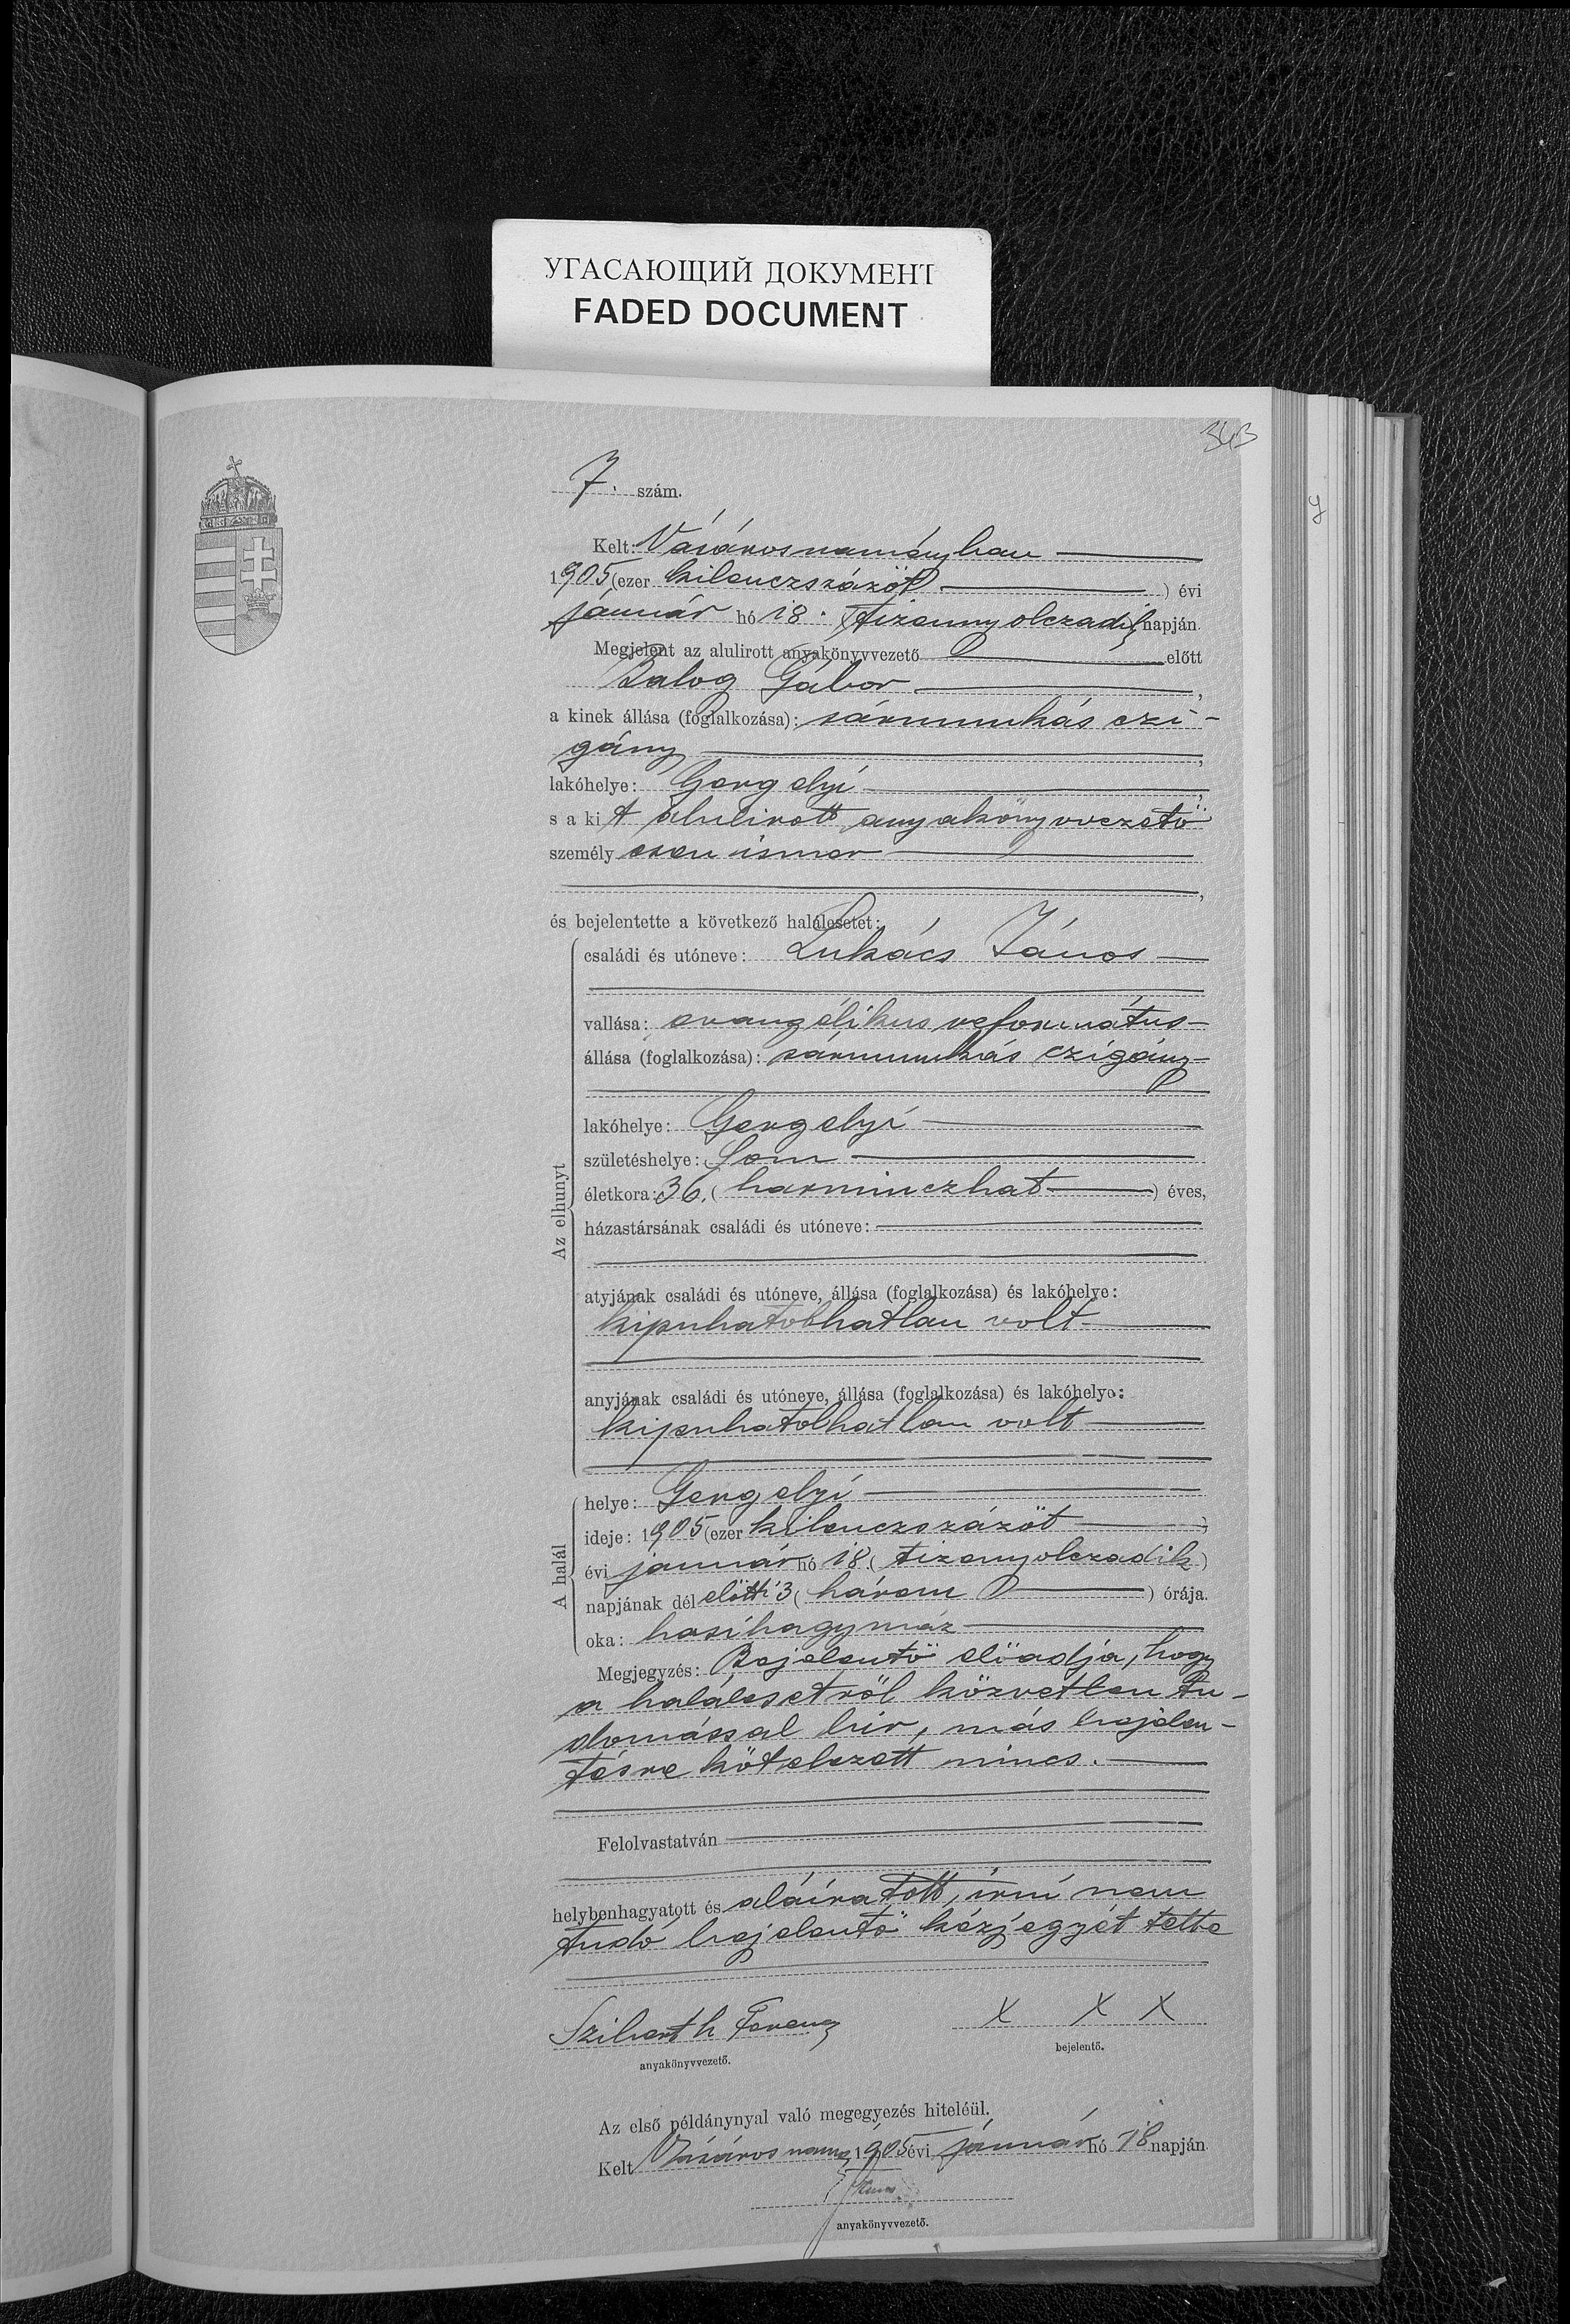 УГАСАЮЩИЙ ДОКУМЕНТ
FADED DOCUMENT
343
7. szám.
Kelt: Vásárosnaményban
1905 (ezer kilenczszázöt ) évi
január hó 18. (tizennyolczadik) napján.
Megjelent az alulirott anyakönyvvezető előtt
Balog Gábor,
a kinek állása (foglalkozása): sármunkás czi-
gány,
lakóhelye: Gergelyi,
s a kit alulirott anyakönyvvezető
személyesen ismer
,
és bejelentette a következő halálesetet:
Az elhunyt
családi és utóneve: Lukács János
vallása: evangélikus református
állása (foglalkozása): sármunkás czigány
lakóhelye: Gergelyi
születéshelye: Som
életkora: 36. (harminczhat) éves,
házastársának családi és utóneve:
atyjának családi és utóneve, állása (foglalkozása) és lakóhelye:
kipuhatolhatlan volt
anyjának családi és utóneve, állása (foglalkozása) és lakóhelye:
kipuhatolhatlan volt
A halál
helye: Gergelyi
ideje: 1905 (ezer kilenczszázöt )
évi január hó 18. (tizennyolczadik)
napjának dél előtti 3 (három ) órája.
oka: hasihagymáz
Megjegyzés: Bejelentő előadja, hogy
a halálesetről közvetlen tu-
domással bír, más bejelen-
tésre kötelezett nincs.
Felolvastatván
helybenhagyatott és aláíratott, írni nem
tudó bejelentő kézjegyét tette
Ferencz X X X
anyakönyvvezető. bejelentő.
Az első példánynyal való megegyezés hiteléül.
Kelt Vásárosnamény 1905 évi január hó 18 napján
anyakönyvvezető.